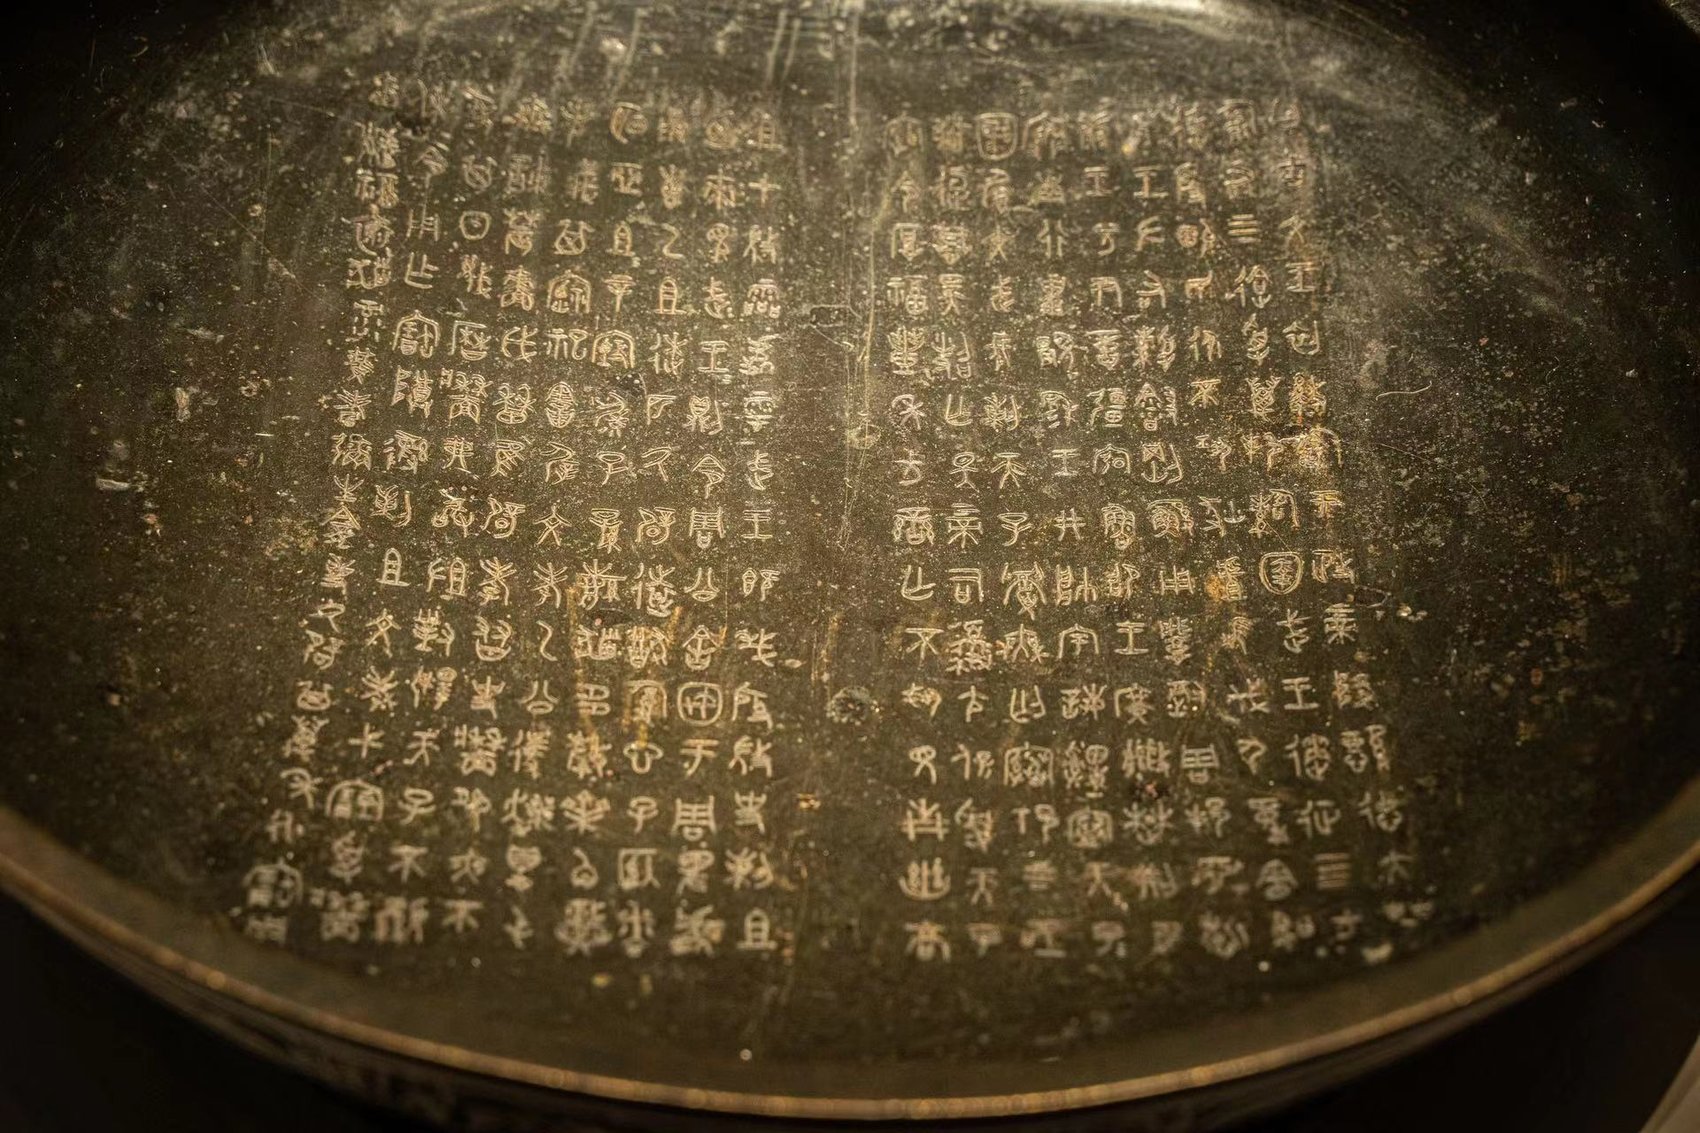 曰古文王初盭龢于政上帝降懿德大甹
匍有上下迨受萬邦䚄圉武王遹征四方
達殷畯民永不巩狄虘髟伐尸童憲聖
成王左右綬剛鯀用肇徹周邦淵哲
康王兮尹億疆弘魯昭王廣能楚荊隹
寏南行祗景穆王井帥宇誨申寧天子
圉饡文武長剌天子眉無匄寋祁上下
亟熙逗慕昊照亡斁上帝司夒尤保受天子
綰令厚福豐年方蠻亡不𢍰見青幽高
且才微霝處雩武王既𢦏殷微史剌且
廼來見武王武王則令周公舍㝢于周卑處
甬叀乙且逨匹氒辟遠猷腹心子納粦
明亞且且辛遷毓子孫繁祓多釐齊角熾光
義其禋祀害屖文考乙公遽爽得屯無諫
農穡歲稼隹辟孝友史墻夙夜不墜
其日蔑曆墻弗敢沮對揚天子不顯
休令用乍寶尊彝剌且文考弋貯受墻
爾䵼福懷祓彔黃耇彌生堪事氒辟其萬年永寶用